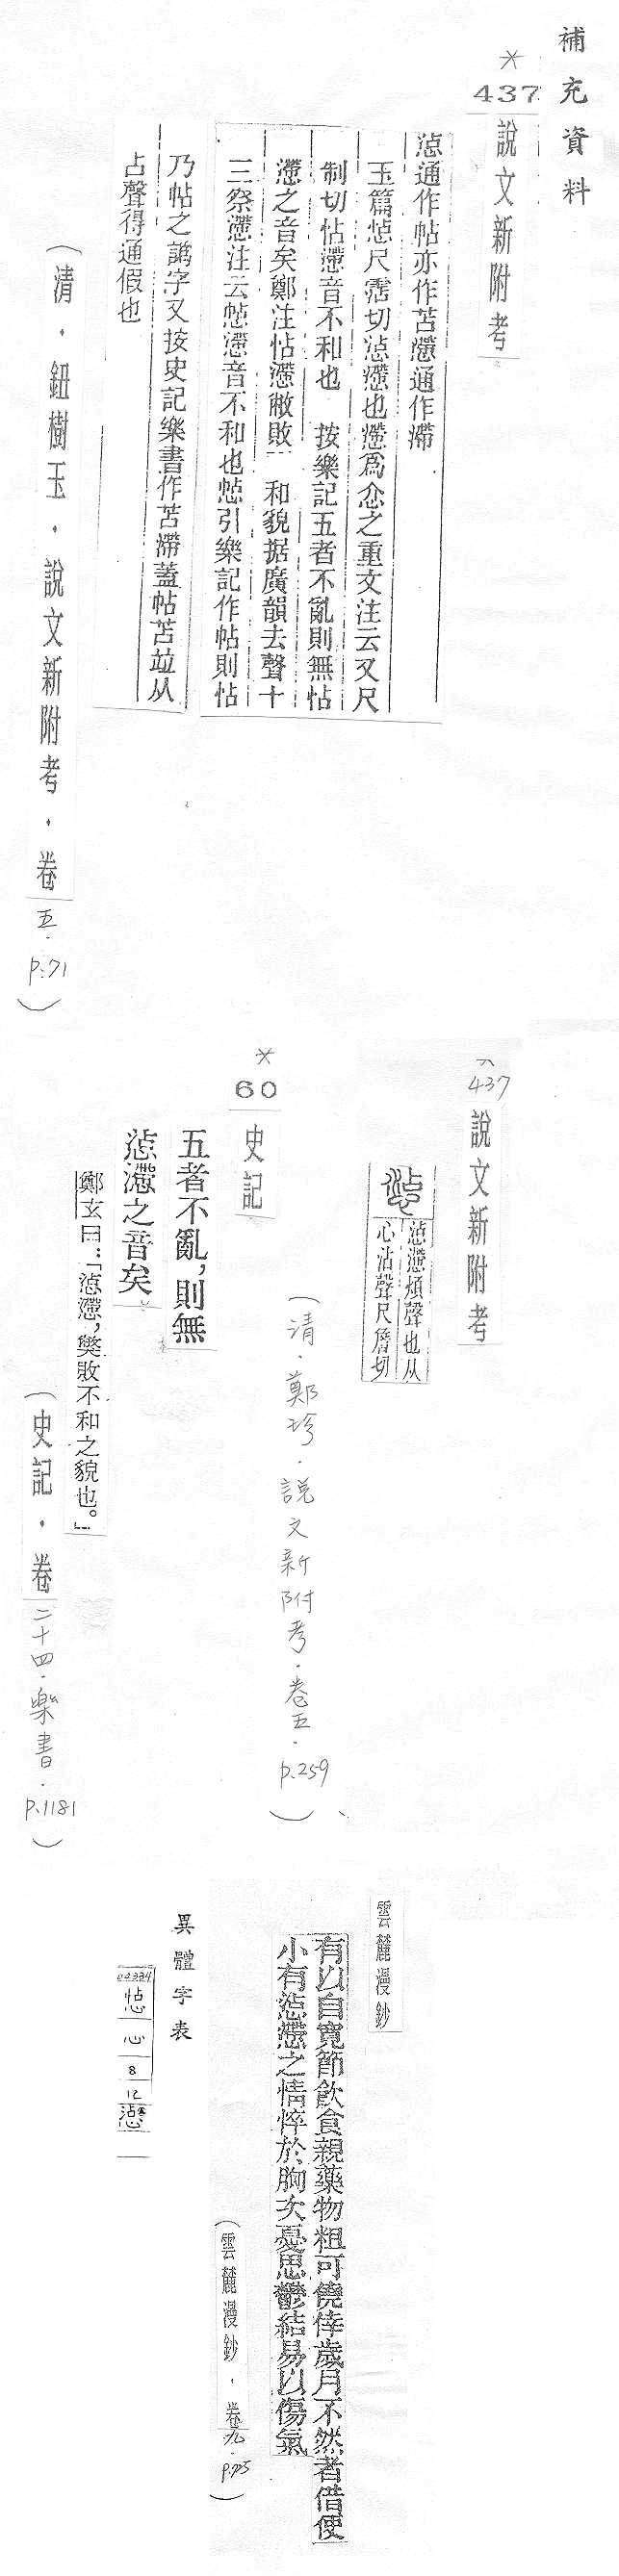 補充資料
*
437
說文新附考
惉通作怗亦作苫懘通作滯
玉篇惉尺霑切惉懘也懘為忿之重文注云又尺
制切怗懘音不和也 按樂記五者不亂則無怗
懘之音矣鄭注怗懘敝敗 和貌据廣韻去聲十
三祭懘注云惉懘音不和也惉引樂記作帖則怗
乃帖之譌字又按史記樂書作苫滯蓋帖苫竝从
占聲得通假也
（清．鈕樹玉．說文新附考．卷五．p.71）
437
說文新附考
惉懘煩聲也从
心沾聲尺詹切
（清．鄭珍．說文新附考．卷五．p.259）
*
60
史記
五者不亂，則無
惉懘之音矣
鄭玄曰：「惉懘，獘敗不和之貌也。」
（史記．卷二十四．樂書．p.1181）
雲麓漫鈔
有以自寬節飲食親藥物粗可僥倖歲月不然者借使
小有惉懘之情悴於胸次憂思鬱結易以傷氣
（雲麓漫鈔．卷九．p.25）
異體字表
惉
心
8
12
惉